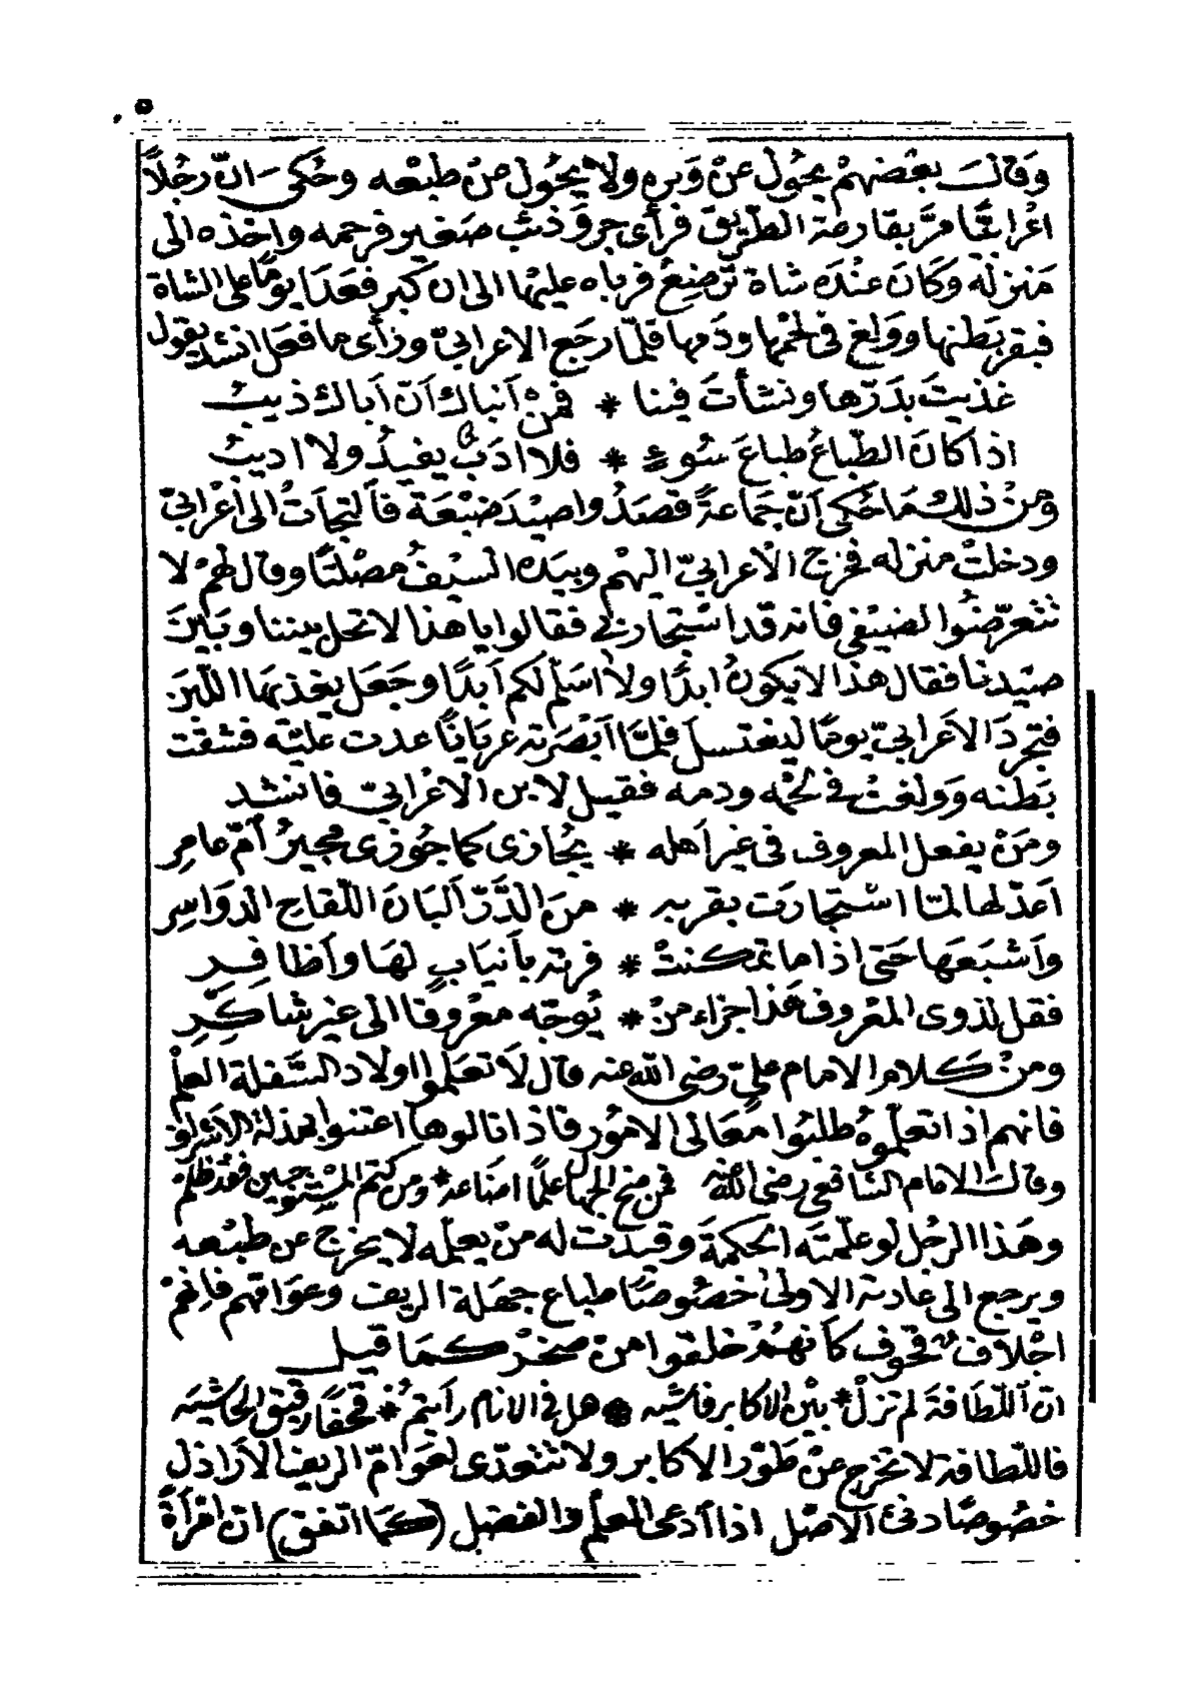 ٥
وَقالَ بعْضهمْ يحُول عنْ وَبرهِ ولا يحُول منْ طبعْه وحُكىَ انّ رجُلاً
اعْرابيًّا مرَّ بقارعة الطَّريق فرأى جروَ ذئب صَغير فرحمه واخذه الى
مَنزله وَكانَ عنْدَه شاة تُرْضِعُ فرباه عليْها الى ان كبر فعَدَا يومًا على الشاة
فبقر بَطنها وولغ فى لحْمها ودَمها فلمّا رجَع الاعرابىّ ورأى ما فعَل انشد يقول
غذيتَ بدَرّها ونشأتَ فينا * فمنْ أنباك أنّ أباك ذيبُ
اذا كانَ الطّباعُ طباعَ سُوءٍ * فلا ادَبٌ يفيدُ ولا اديبُ
ومنْ ذلك مَا حُكى أنّ جَماعةً قصَدُوا صيْدَ ضبْعَة فالتجأتْ الى أعْرابىّ
ودخلتْ منزله فخرج الأعرابىّ اليهْم وبيَده السيْفُ مصْلتًا وقال لهمْ لا
تتعرّضُوا لضيْفى فانه قد استْجار بى فقالوا يا هذا لا تحل بيننا وبَينَ
صيْدنا فقال هذا لا يكونُ ابدًا ولا اسَلّم لكم أبدًا وجَعَل يغذيهَا اللّبَن
فتجردَ الاعْرابىّ يومًا ليغتسلَ فلمَّا أبْصَرته عريانًا عدت عليْه فشقت
بَطنه وَولغتْ فى لحْمه ودمه فقيل لابن الاعْرابىّ فانشد
ومَنْ يفعل المعروف فى غير أهله * يُجازى كما جُوزى مجيرُ أمّ عامِر
اعدّ لها لمّا استْجارَت بقربه * منَ الدَّرّ ألبَان اللّقاح الدوَاسِر
وأشبَعَها حَتى اذا ما تمكنتْ * فرته بأنيَابٍ لهَا وأظافِرِ
فقل لذوى المعْروف هَذا جزاء منْ * يُوجّه معْروفا الى غيْر شاكِرِ
ومنْ كلام الامام علىّ رضى الله عنه قال لا تعَلموا اولاد السَّفلة العلْم
فانهم اذا تعلّموهُ طلبُوا معَالى الامُور فاذا نالوها اعتنوا بمذلة الاشراف
وقال الامام الشافعى رضى الله عنه فمن منح الجهال علمًا اضاعه * ومن كتم المسْتوجبين فقد ظلمْ
وهَذا الرجُل لو علّمته الحكمَة وقيدت له منْ يعلّمه لا يخرج عن طبْعه
ويرجع الى عَادته الاولى خصُوصًا طباع جهَلة الريف وعوامّهم فانهمْ
اجْلاف قحوف كأنهمْ خلقوا من صَخْر كمَا قيل
انّ اللّطافة لم تزلْ * بيْن الاكابر فاشيه * هل فى الانام رأيتمْ * قحفًا رقيق الحَاشيَه
فاللّطافة لا تخرج عنْ طَوْر الاكابر ولا تتعدّى لعَوامّ الريف الاراذل
خصُوصًا دنىء الاصْل اذا أدعى العلم والفضل (كما اتفق) ان امْرأةً